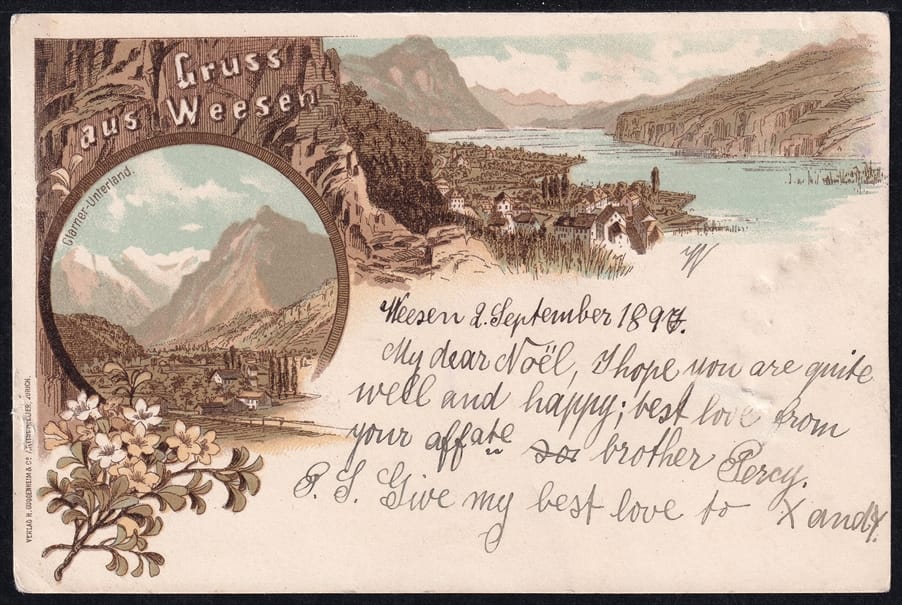 Gruss
aus Weesen
Glarner-Unterland.
Weesen 2. September 1897.
My dear Noël, I hope you are quite
well and happy; best love from
your affate brother Percy.
P. S. Give my best love to X and Y.
VERLAG H. GUGGENHEIM & Co ZÜRICH.